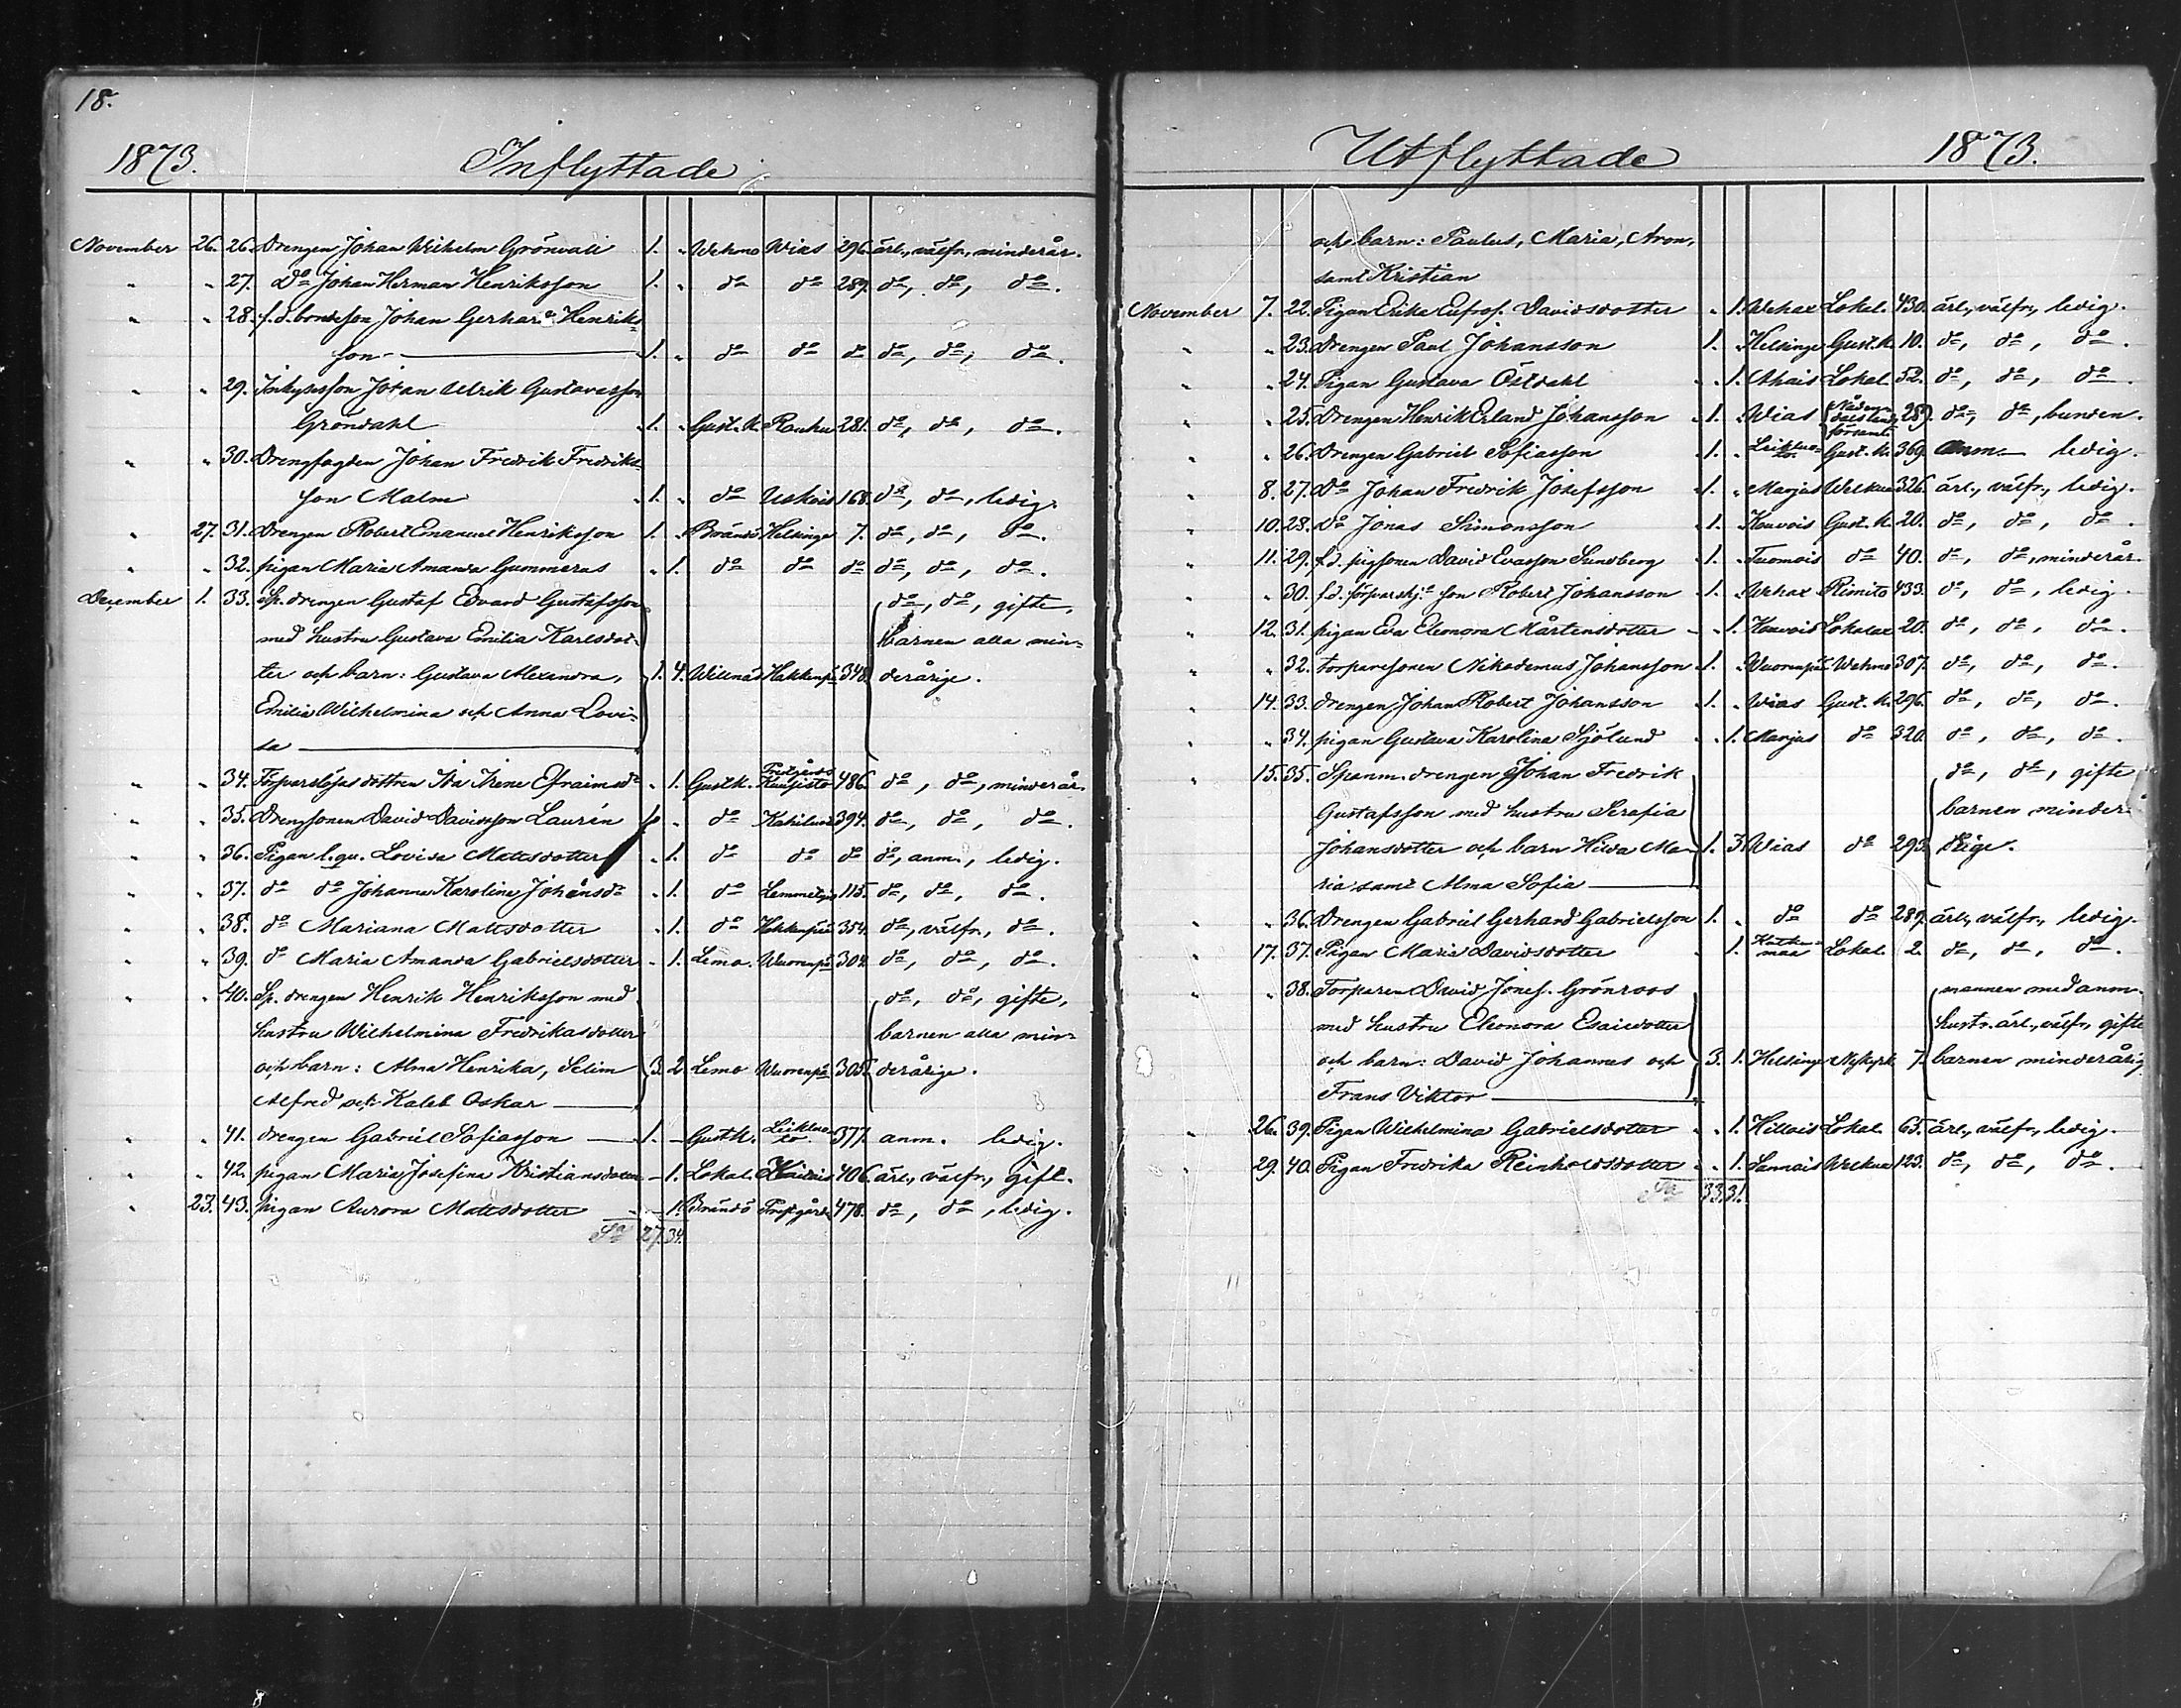 18.
1873. Inflyttade
November 26. 26. Drengen Johan Wilhelm Grönvall 1. „ Wehmo Wias 296. ärl., välfr., minderår.
„ „ 27. Do Johan Herman Henriksson 1. „ do do 289. do, do, do.
„ „ 28. f. d. bondeson Johan Gerhard Henriks-
son 1. „ do do do do, do, do.
„ „ 29. Inhysesson Johan Ulrik Gustavasson
Gröndahl 1. „ Gust. k. Rauhu 281. do, do, do.
„ „ 30. Drengfogden Johan Fredrik Fredriks-
son Malm 1. „ do 168. do, do, ledig.
„ 27. 31. Drengen Robert Emanuel Henriksson 1. „ Brändö Helsinge 7. do, do, do.
„ „ 32. pigan Maria Amanda Gummerus „ 1. do do do do, do, do.
December 1. 33. Sp. drengen Gustaf Edvard Gustafsson do, do, gifte,
med hustru Gustava Emilia Karlsdot- barnen alla min-
ter och barn: Gustava Alexandra, 1. 4. Willnäs Hakkenpä 348. derårige.
Emilia Wilhelmina och Anna Lovi-
sa
„ „ 34. Torparelöses dottren Ida Irene Efraimsdr „ 1. Gustk. Prestgårds Kuusisto 486. do, do, minderår.
„ „ 35. Drengsonen David Davidsson Laurén 1. „ do Kahiluo 394. do, do, do.
„ „ 36. Pigan l. qu. Lovisa Mattsdotter „ 1. do do do do, anm., ledig.
„ „ 37. do do Johanna Karolina Johansdr „ 1. do 115. do, do, do.
„ „ 38. do Mariana Mattsdotter „ 1. do Hakkenpä 354. do, välfr., do.
„ „ 39. do Maria Amanda Gabrielsdotter „ 1. Lemo. Wuorenpä 304. do, do, do.
„ „ 40. Sp. drengen Henrik Henriksson med do, do, gifte,
hustru Wilhelmina Fredriksdotter barnen alla min-
och barn: Alma Henrika, Selim 3. 2 Lemo Wuorenpä 305. derårige.
Alfred och Kaleb Oskar
„ „ 41. drengen Gabriel Sofiasson 1. „ Gustk. Leikluo-to. 377. anm. ledig.
„ „ 42. pigan Maria Josefina Kristiansdotter „ 1. Lokal. 406. ärl., välfr., gift.
„ 23. 43. pigan Aurora Mattsdotter „ 1. Brändö Prestgårds 478. do, do, ledig.
Sa 27. 34.
Utflyttade 1873.
och barn: Paulus, Maria, Aron,
samt Kristian
November 7. 22. Pigan Erika Eufros. Davidsdotter „ 1. Wehax Lokal. 430. ärl., välfr., ledig.
„ „ 23. Drengen Paul Johansson 1. „ Helsinge Gust. k. 10. do, do, do.
„ „ 24. Pigan Gustava Östdahl „ 1. Ahais Lokal. 52. do, do, do.
„ „ 25. Drengen Henrik Erland Johansson 1. „ Wias Nådendals lands församl. 289. do, do, bunden.
„ „ 26. Drengen Gabriel Sofiasson 1. „ Leikluo-to. Gust. k. 369. anm. ledig.
„ 8. 27. Do Johan Fredrik Josefsson 1. „ Marjus Welkua 326. ärl., välfr., ledig.
„ 10. 28. do Jonas Simonsson 1. „ Kouvois Gust. k. 20. do, do, do.
„ 11. 29. f. d. pigsonen David Evasson Sundberg 1. „ Tuomois do 40. do, do, minderår.
„ „ 30. f. d. son Robert Johansson 1. „ Wehax Rimito 433. do, do, ledig.
„ 12. 31. pigan Eva Eleonora Mårtensdotter „ 1. Kouvois Lokalax 20. do, do, do.
„ „ 32. torparesonen Nikodemus Johansson 1. „ Wuorenpä Wehmo 307. do, do, do.
„ 14. 33. drengen Johan Robert Johansson 1. „ Wias Gust. k. 296. do, do, do.
„ „ 34. pigan Gustava Karolina Sjölund „ 1. Marjus do 320. do, do, do.
„ 15. 35. Spanm. drengen Johan Fredrik do, do, gifte
Gustafsson med hustru Serafia barnen minder-
Johansdotter och barn Hilda Ma- 1. 3. Wias do 293. årige.
ria samt Alma Sofia
„ „ 36. Drengen Gabriel Gerhard Gabrielsson 1. „ do do 289. ärl., välfr., ledig.
„ 17. 37. Pigan Maria Davidsdotter 1. Lokal. 2. do, do, do.
„ „ 38. Torparen David Jonef. Grönroos mannen med anm.
med hustru Eleonora Esaiedotter hustr. ärl., välfr., gifte
och barn: David Johannes och 3. 1. Helsinge Nykyrk. 7. barnen minderårig
Frans Viktor
„ 26. 39. Pigan Wilhelmina Gabrielsdotter „ 1. Hillois Lokal. 65. ärl., välfr., ledig.
„ 29. 40. Pigan Fredrika Reinholdsdotter „ 1. Sannais Welkua 123. do, do, do.
Sa 33. 31.